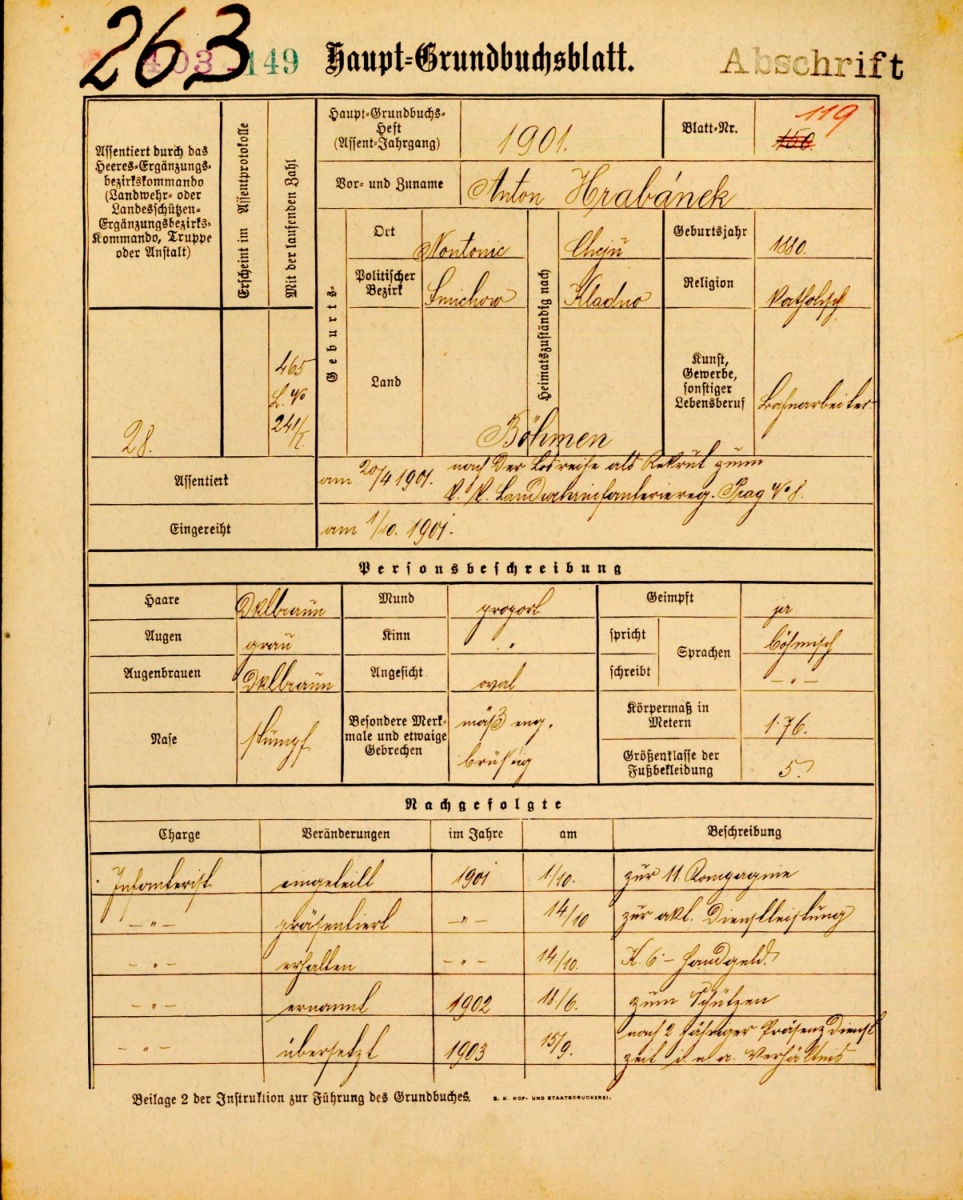 263
403 149 Haupt-Grundbuchsblatt. Abschrift
Assentiert durch das
Heeres-Ergänzungs-
bezirkskommando
(Landwehr- oder
Landesschützen-
Ergänzungsbezirks-
Kommando, Truppe
oder Anstalt)
Erscheint im Assentprotokolle
Mit der laufenden Zahl
Haupt-Grundbuchs-
Heft
(Assent-Jahrgang)
1901.
Blatt-Nr.
119
150
Vor- und Zuname
Anton Hrabánek
Geburts-
Ort
Politischer
Bezirk
Smichow
Land
Heimatszuständig nach
Kladno
Böhmen
Geburtsjahr
1880.
Religion
katholisch
Kunst,
Gewerbe,
sonstiger
Lebensberuf
Bahnarbeiter
28.
465
L. No
Assentiert
am 20/4 1901. nach der Losreihe als Rekrut zum
k. k. Landwehrinfanteriereg. Prag No 8.
Eingereiht
am 1/10. 1901.
Personsbeschreibung
Haare
Dklbraun
Mund
proport
Geimpft
ja
Augen
grau
Kinn
"
spricht
schreibt
Sprachen
böhmisch
- " -
Augenbrauen
Dklbraun
Angesicht
oval
Nase
stumpf
Besondere Merk-
male und etwaige
Gebrechen
mäß eng.
brüstig
Körpermaß in
Metern
1·76.
Größenklasse der
Fußbekleidung
5.
Nachgefolgte
Charge Veränderungen im Jahre am Beschreibung
Infanterist eingeteilt 1901 1/10. zur 11 Kompagnie
- " - präsentiert - " - 14/10 zur akt. Dienstleistung
- " - erhalten - " - 14/10. K. 6 - Handgeld.
- " - ernannt 1902 18/6. zum Schützen
- " - übersetzt 1903 15/9. nach 2 jähriger Präsenzdienst
zeit i. d. n. a. Verhältnis
Beilage 2 der Instruktion zur Führung des Grundbuches. K. K. HOF- UND STAATSDRUCKEREI.